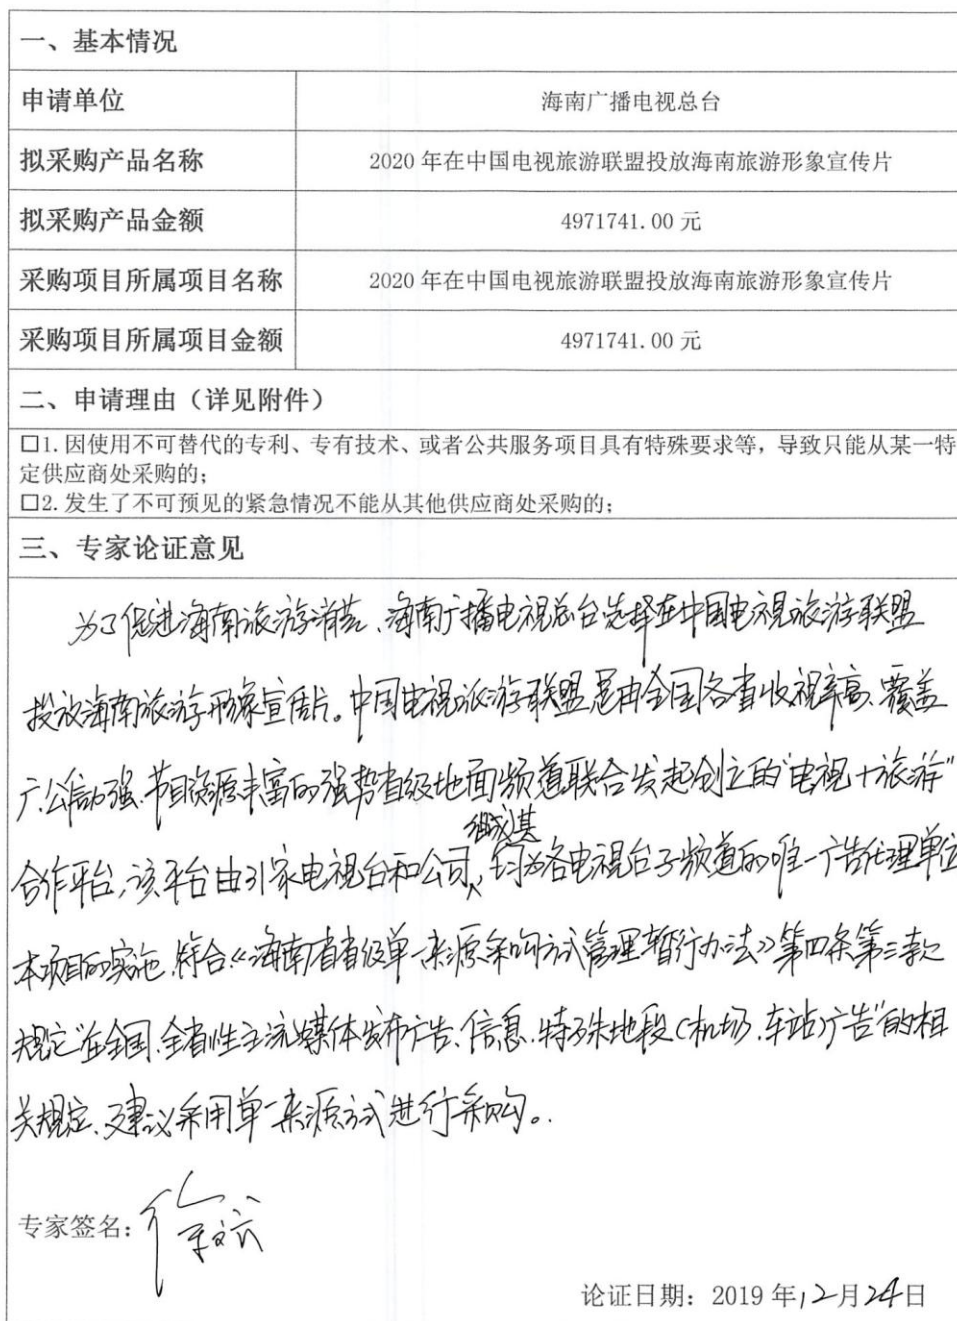 一、基本情况
申请单位 海南广播电视总台
拟采购产品名称 2020年在中国电视旅游联盟投放海南旅游形象宣传片
拟采购产品金额 4971741.00元
采购项目所属项目名称 2020年在中国电视旅游联盟投放海南旅游形象宣传片
采购项目所属项目金额 4971741.00元
二、申请理由（详见附件）
□1.因使用不可替代的专利、专有技术、或者公共服务项目具有特殊要求等，导致只能从某一特
定供应商处采购的；
□2.发生了不可预见的紧急情况不能从其他供应商处采购的；
三、专家论证意见
为了促进海南旅游消费、海南广播电视总台选择在中国电视旅游联盟
投放海南旅游形象宣传片。中国电视旅游联盟是由全国各省收视率高、覆盖
广、公信力强、节目资源丰富的强势省级地面频道联合发起创立的"电视+旅游"
合作平台,该平台由31家电视台和公司组成,其均为各电视台子频道的唯一广告代理单位
本项目的实施,符合《海南省省级单一来源采购方式管理暂行办法》第四条第三款
规定"在全国、全省性主流媒体发布广告、信息、特殊地段(机场、车站)广告"的相
关规定、建议采用单一来源方式进行采购。
专家签名：
论证日期：2019年12月24日